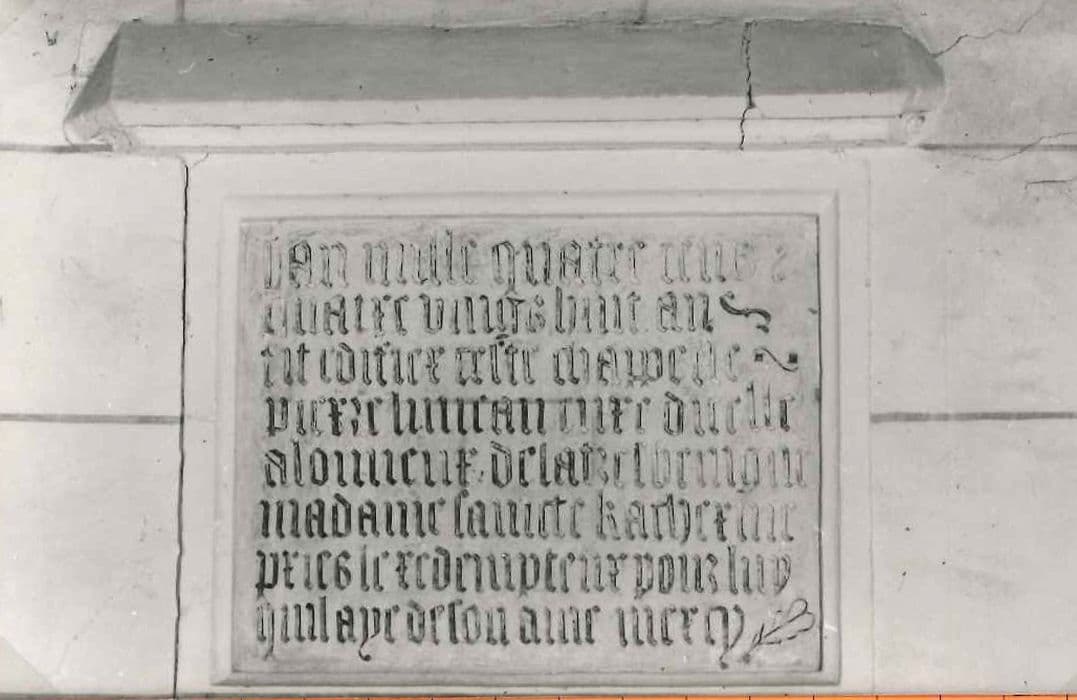 lan mille quatre cens
quatre vingts huit an
fit edifier ceste chappelle
pierre luneau cure duelle
alonneur de la tresbenigne
madame saincte katherine
pries le redempteur pour luy
quil aye de son ame mercy